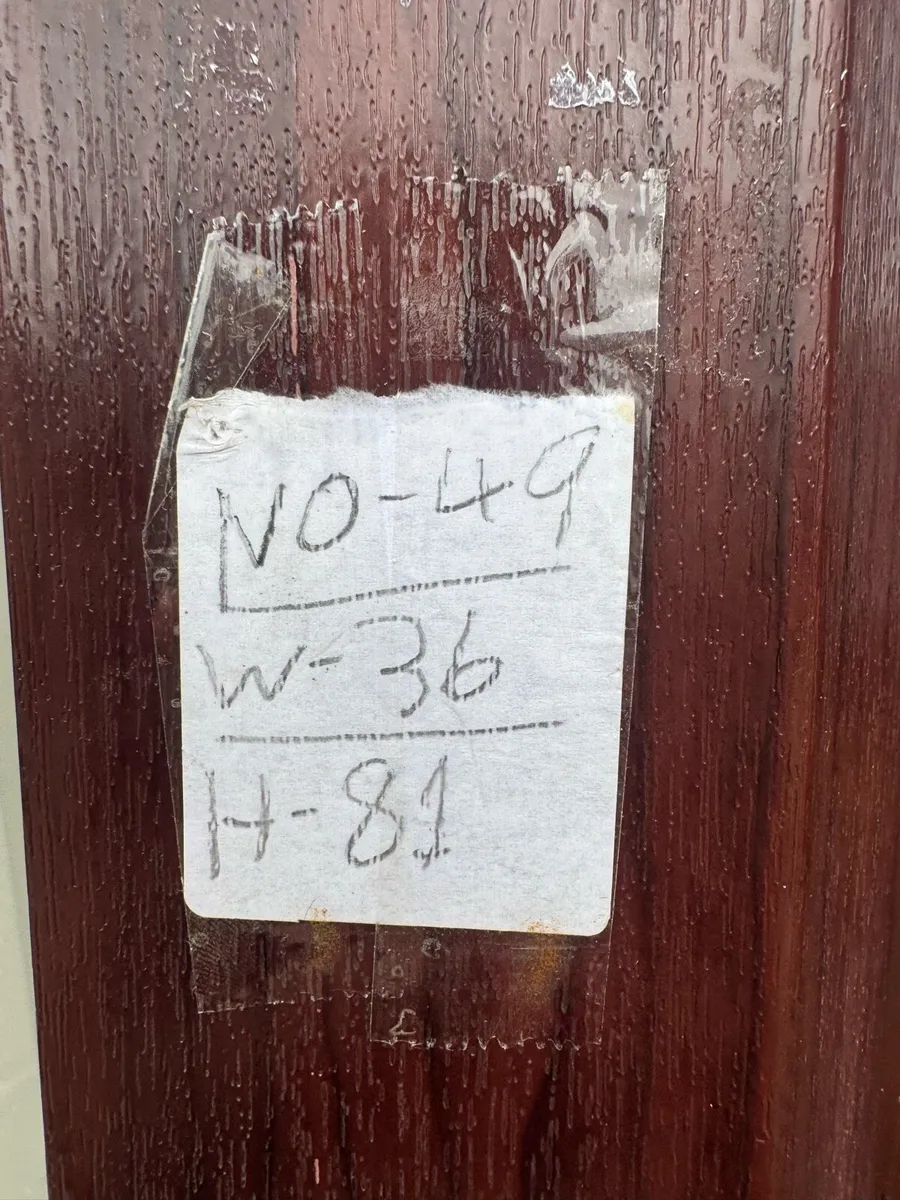 NO-49
W-36
H-81